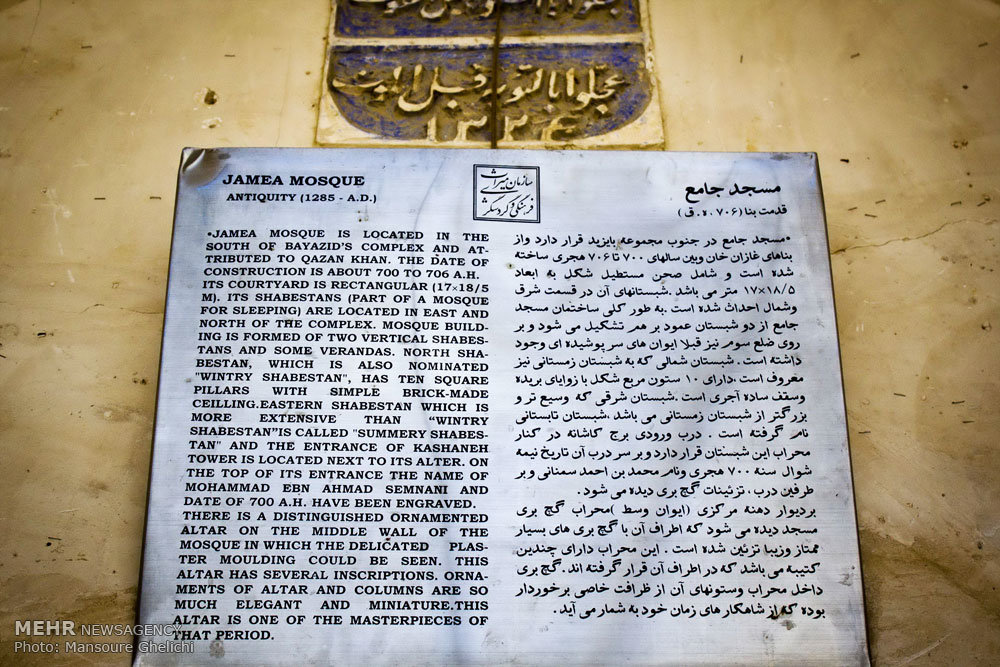 عجلوا بالتوبه قبل الموت
۱۳۲۶
JAMEA MOSQUE
ANTIQUITY (1285 - A.D.)
•JAMEA MOSQUE IS LOCATED IN THE
SOUTH OF BAYAZID'S COMPLEX AND AT-
TRIBUTED TO QAZAN KHAN. THE DATE OF
CONSTRUCTION IS ABOUT 700 TO 706 A.H.
ITS COURTYARD IS RECTANGULAR (17×18/5
M). ITS SHABESTANS (PART OF A MOSQUE
FOR SLEEPING) ARE LOCATED IN EAST AND
NORTH OF THE COMPLEX. MOSQUE BUILD-
ING IS FORMED OF TWO VERTICAL SHABES-
TANS AND SOME VERANDAS. NORTH SHA-
BESTAN, WHICH IS ALSO NOMINATED
"WINTRY SHABESTAN", HAS TEN SQUARE
PILLARS WITH SIMPLE BRICK-MADE
CEILLING.EASTERN SHABESTAN WHICH IS
MORE EXTENSIVE THAN "WINTRY
SHABESTAN"IS CALLED "SUMMERY SHABES-
TAN" AND THE ENTRANCE OF KASHANEH
TOWER IS LOCATED NEXT TO ITS ALTER. ON
THE TOP OF ITS ENTRANCE THE NAME OF
MOHAMMAD EBN AHMAD SEMNANI AND
DATE OF 700 A.H. HAVE BEEN ENGRAVED.
THERE IS A DISTINGUISHED ORNAMENTED
ALTAR ON THE MIDDLE WALL OF THE
MOSQUE IN WHICH THE DELICATED PLAS-
TER MOULDING COULD BE SEEN. THIS
ALTAR HAS SEVERAL INSCRIPTIONS. ORNA-
MENTS OF ALTAR AND COLUMNS ARE SO
MUCH ELEGANT AND MINIATURE.THIS
ALTAR IS ONE OF THE MASTERPIECES OF
THAT PERIOD.
سازمان میراث
فرهنگی و گردشگری
مسجد جامع
قدمت بنا (۷۰۶ ه. ق)
•مسجد جامع در جنوب مجموعه بایزید قرار دارد واز
بناهای غازان خان وبین سالهای ۷۰۰ تا ۷۰۶ هجری ساخته
شده است و شامل صحن مستطیل شکل به ابعاد
۱۷×۱۸/۵ متر می باشد .شبستانهای آن در قسمت شرق
وشمال احداث شده است .به طور کلی ساختمان مسجد
جامع از دو شبستان عمود بر هم تشکیل می شود و بر
روی ضلع سوم نیز قبلا ایوان های سر پوشیده ای وجود
داشته است . شبستان شمالی که به شبستان زمستانی نیز
معروف است ،دارای ۱۰ ستون مربع شکل با زوایای بریده
وسقف ساده آجری است .شبستان شرقی که وسیع تر و
بزرگتر از شبستان زمستانی می باشد ،شبستان تابستانی
نام گرفته است . درب ورودی برج کاشانه در کنار
محراب این شبستان قرار دارد و بر سر درب آن تاریخ نیمه
شوال سنه ۷۰۰ هجری ونام محمد بن احمد سمنانی و بر
طرفین درب ، تزئینات گچ بری دیده می شود .
بردیوار دهنه مرکزی (ایوان وسط )محراب گچ بری
مسجد دیده می شود که اطراف آن با گچ بری های بسیار
ممتاز وزیبا تزئین شده است . این محراب دارای چندین
کتیبه می باشد که در اطراف آن قرار گرفته اند .گچ بری
داخل محراب وستونهای آن از ظرافت خاصی برخوردار
بوده که از شاهکار های زمان خود به شمار می آید .
MEHR NEWSAGENCY
Photo: Mansoure Ghelichi